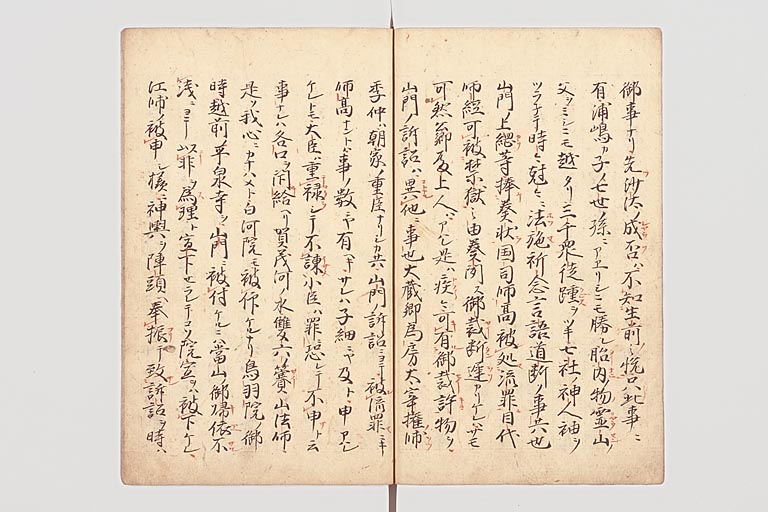 御事ナリ先沙汰ノ成否ハ不知生前ノ悦只此事ニ
有浦嶋カ子ノ七世孫ニアエリシニモ勝レ胎内ノ物霊山ノ
父ヲミシニモ越タリ三千衆徒踵ヲ
七社神人袖ヲ
ツラナテ時々尅々ニ法施祈念言語道断ノ事共也
山門ノ上綱等捧奏状国司師高被処流罪目代
師経可被禁獄之由奏聞ス御裁断遅カリケレハサモ
可然公卿殿上人ハアハレ是ハ疾ニ可有御裁許物ヲ
山門ノ訴詔ハ異他ニ事也大蔵卿為房大宰権帥
季仲ハ朝家ノ重臣ナリシカ共山門ノ訴詔ニヨテ被流罪ニキ
師高ナントハ事ノ数ニヤ有ヘキサレハ子細ニヤ及ト申アハレ
ケレトモ大臣ハ重禄シテ不諌小臣ハ罪恐シテ不申ト云
事ナレハ各口ヲ閉給ヘリ賀茂河ノ水雙六ノ賽山法師
是ソ我心ニカナハヌト白河院モ被仰ケルナリ鳥羽院ノ御
時越前ノ平泉寺ヲ山門ニ被付ケルニハ當山御帰依不
浅ニヨテ以非ヲ為理ト宣下セラレテコソ院宣ヲハ被下ケレ
江帥ノ被申シ様ニ神輿ヲ陣頭ヘ奉振テ致訴詔ヲ時ハ